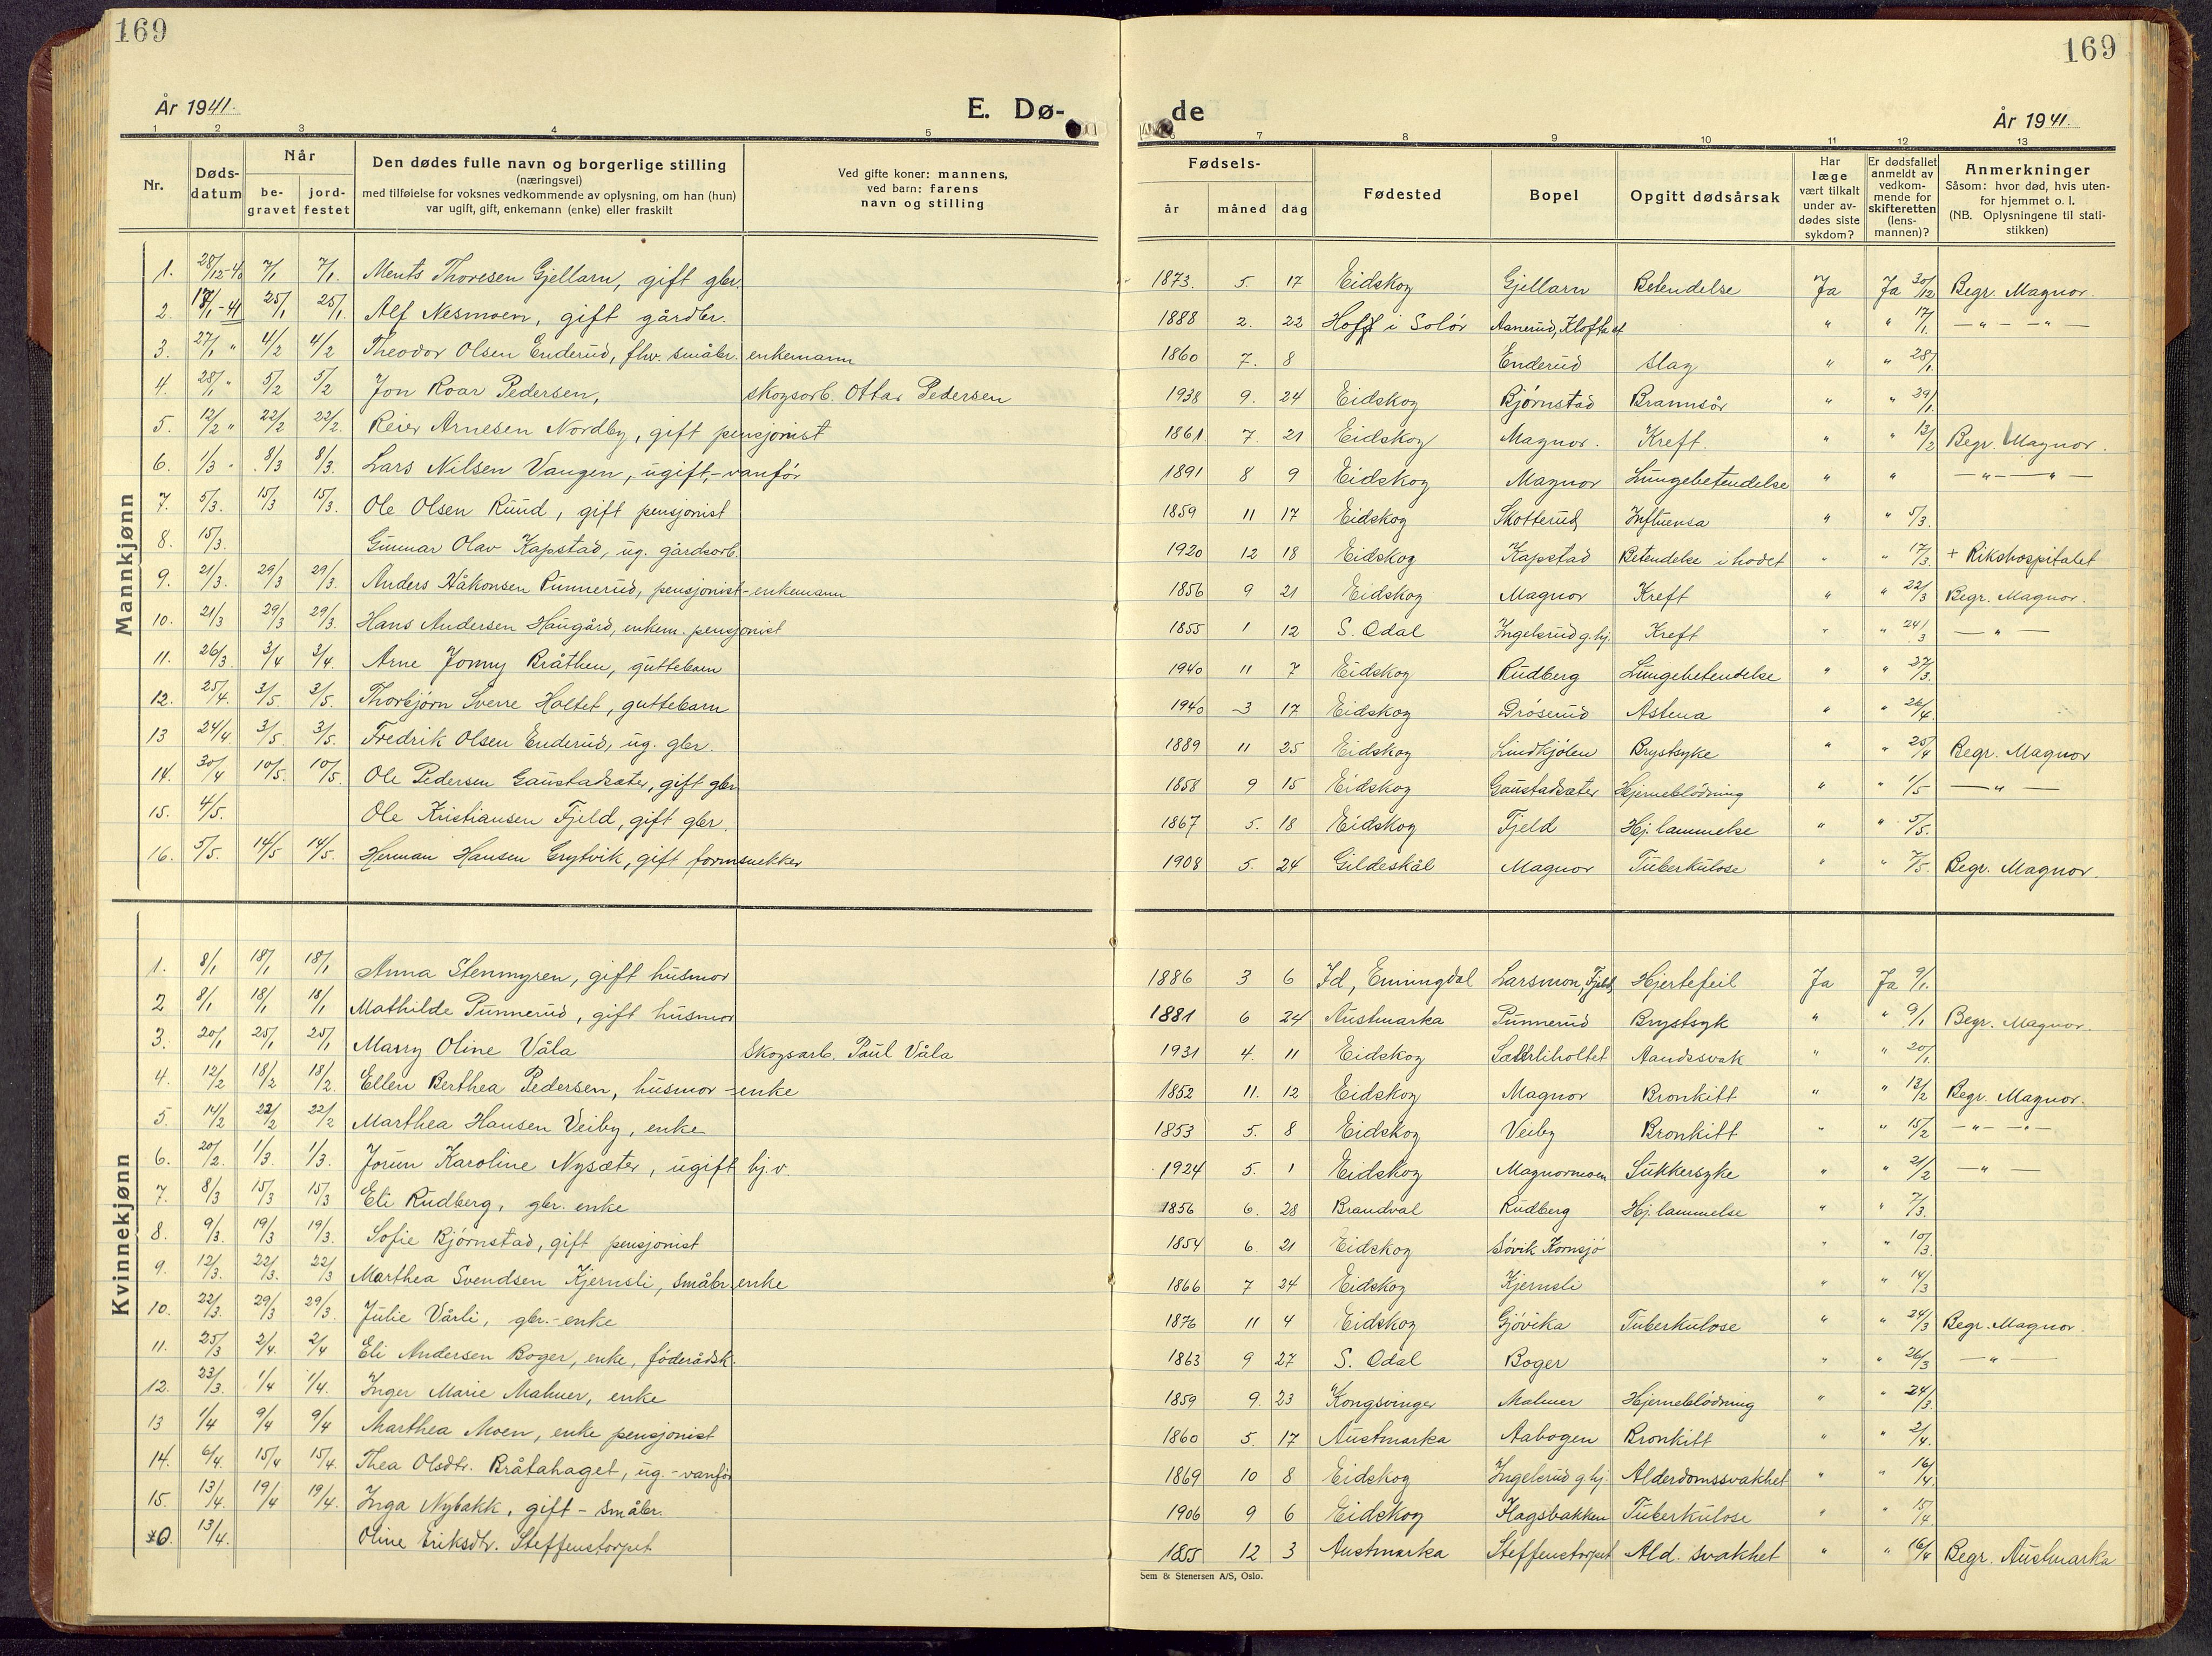 169
169
År 1941.
E. Dø-
de
År 1941.
1 2 3 4 5 7 8 9 10 11 12 13
Nr.
Døds-
datum
Når
be-
gravet
jord-
festet
Den dødes fulle navn og borgerlige stilling
(næringsvei)
med tilføielse for voksnes vedkommende av oplysning, om han (hun)
var ugift, gift, enkemann (enke) eller fraskilt
Ved gifte koner: mannens,
ved barn: farens
navn og stilling
Fødsels-
år måned dag
Fødested
Bopel
Opgitt dødsårsak
Har
læge
vært tilkalt
under av-
dødes siste
sykdom?
Er dødsfallet
anmeldt av
vedkom-
mende for
skifteretten
(lens-
mannen)?
Anmerkninger
Såsom: hvor død, hvis uten-
for hjemmet o. l.
(NB. Oplysningene til stati-
stikken)
Mannkjønn
1. 28/12-40 7/1 7/1. Ments Thoresen Gjellarn, gift gbr. 1873. 5. 17 Eidskog Gjellarn Betendelse Ja Ja 30/12 Begr. Magnor.
2. 17/1-41 25/1 25/1. Alf Nesmoen, gift gårdbr. 1888 2. 22 Hoff i Solør Aanerud, " " 17/1. — " — " —
3. 27/1 " 4/2 4/2 Theodor Olsen Enderud, fhv. småbr. enkemann 1860 7. 8 Enderud Slag " " 28/1.
4. 28/1 " 5/2 5/2 Jon Roar Pedersen, skogsarb. Ottar Pedersen 1938 9. 24 Eidskog Bjørnstad Brannsår " " 29/1.
5. 12/2 " 22/2 22/2. Reier Arnesen Nordby, gift pensjonist 1861. 7. 21 Eidskog Magnor. Kreft. " " 13/2 Begr. Magnor.
6. 1/3 " 8/3 8/3. Lars Nilsen Vangen, ugift,- vanfør 1891 8 9 Eidskog Magnor Lungebetendelse " " — " — " —
7. 5/3. 15/3 15/3. Ole Olsen Ruud, gift pensjonist 1859 11 17 Eidskog Skotterud Influensa " " 5/3.
8. 15/3. Gunnar Olav Kapstad, ug. gårdsarb. 1920 12 18 Eidskog Kapstad Betendelse i hodet " " 17/3. + Rikshospitalet
9. 21/3. 29/3 29/3. Anders Håkonsen Punnerud, pensjonist - enkemann 1856 9 21 Eidskog Magnor Kreft " " 22/3 Begr. Magnor.
10. 21/3 29/3 29/3. Hans Andersen Haugård, enkem. pensjonist 1855 1 12 S. Odal Ingelsrud g.hj. Kreft " " 24/3 — " —
11. 26/3. 3/4 3/4. Arne Jonny Bråthen, guttebarn 1940 11 7 Eidskog Rudberg Lungebetendelse " " 27/3.
12. 25/4. 3/5. 3/5. Thorbjørn Sverre Holtet, guttebarn 1940 3 17 Eidskog Drøserud Astma " " 26/4.
13 24/4. 3/5. 3/5. Fredrik Olsen Enderud, ug. gbr. 1889 11 25 Eidskog Lindkjølen Brystsyke " " 25/4 Begr. Magnor
14. 30/4 10/5. 10/5. Ole Pedersen Gaustadsæter, gift gbr 1858 9 15 Eidskog Gaustadsæter Hjerneblødning " " 1/5 — " —
15. 4/5. Ole Kristiansen Fjeld, gift gbr. 1867 5. 18 Eidskog Fjeld Hj. lammelse " " 5/5.
16. 5/5. 14/5 14/5. Herman Hansen Grytvik, gift formsnekker 1908 5. 24 Gildeskål Magnor Tuberkulose " " 7/5. Begr. Magnor.
Kvinnekjønn
1. 8/1 18/1 18/1 Anna Stenmyren, gift husmor 1886 3 6 Id, Enningdal Larsmon, Fjeld Hjertefeil Ja Ja 9/1.
2 8/1 18/1 18/1 Mathilde Punnerud, gift husmor 1881 6 24 Austmarka Punnerud Brystsyk " " 9/1 Begr. Magnor.
3. 20/1 25/1 25/1 Marry Oline Våla Skogsarb. Paul Våla 1931 4. 11 Eidskog Aandssvak " " 20/1.
4. 12/2 18/2 18/2. Ellen Berthea Pedersen, husmor - enke 1852 11. 12 Eidskog Magnor Bronkitt " " 13/2 Begr. Magnor.
5. 14/2 22/2 22/2 Marthea Hansen Veiby, enke 1853 5. 8 Eidskog Veiby Bronkitt " " 15/2 — " — " —
6. 20/2. 1/3. 1/3. Jorun Karoline Nysæter, ugift hj.v. 1924 5. 1 Eidskog Magnormoen Sukkersyke " " 21/2 — " —
7. 8/3 15/3 15/3 Eli Rudberg, gbr. enke 1856 6. 28 Brandval Rudberg Hj. lammelse " " 7/3.
8. 9/3. 19/3 19/3. Sofie Bjørnstad, gift pensjonist 1854 6. 21 Eidskog Søvik Kornsjø " " 10/3.
9. 12/3. 22/3. 22/3 Marthea Svendsen Kjernsli, småbr. enke 1866 7 24 Eidskog Kjernsli " " 14/3
10. 22/3. 29/3 29/3. Julie Vårli, gbr.- enke 1876 11 4 Eidskog Gjøvika Tuberkulose " " 24/3 Begr. Magnor.
11. 25/3 2/4. 2/4 Eli Andersen Boger, enke, føderådsk. 1863 9 27 S. Odal Boger " " 26/3 — " —
12. 23/3. 1/4 1/4. Inger Marie Malmer, enke 1859 9. 23 Kongsvinger Malmer Hjerneblødning " " 24/3.
13 1/4 9/4 9/4 Marthea Moen, enke pensjonist 1860 5. 17 Austmarka Aabogen Bronkitt " " 2/4.
14. 6/4. 15/4 15/4. Thea Olsdtr. Bråtahaget, ug. - vanfør 1869 10 8 Eidskog Ingelsrud g.hj. Alderdomssvakhet " " 16/4.
15. 13/4. 19/4 19/4. Inga Nybakk, gift - småbr. 1906 9 6 Eidskog Flagsbakken Tuberkulose " " 15/4.
0. 13/4. Oline Eriksdtr. Steffenstorpet 1855 12 3 Austmarka Steffenstorpet Ald. svakhet " " 16/4 Begr. Austmarka
Sem & Stenersen A/S, Oslo.